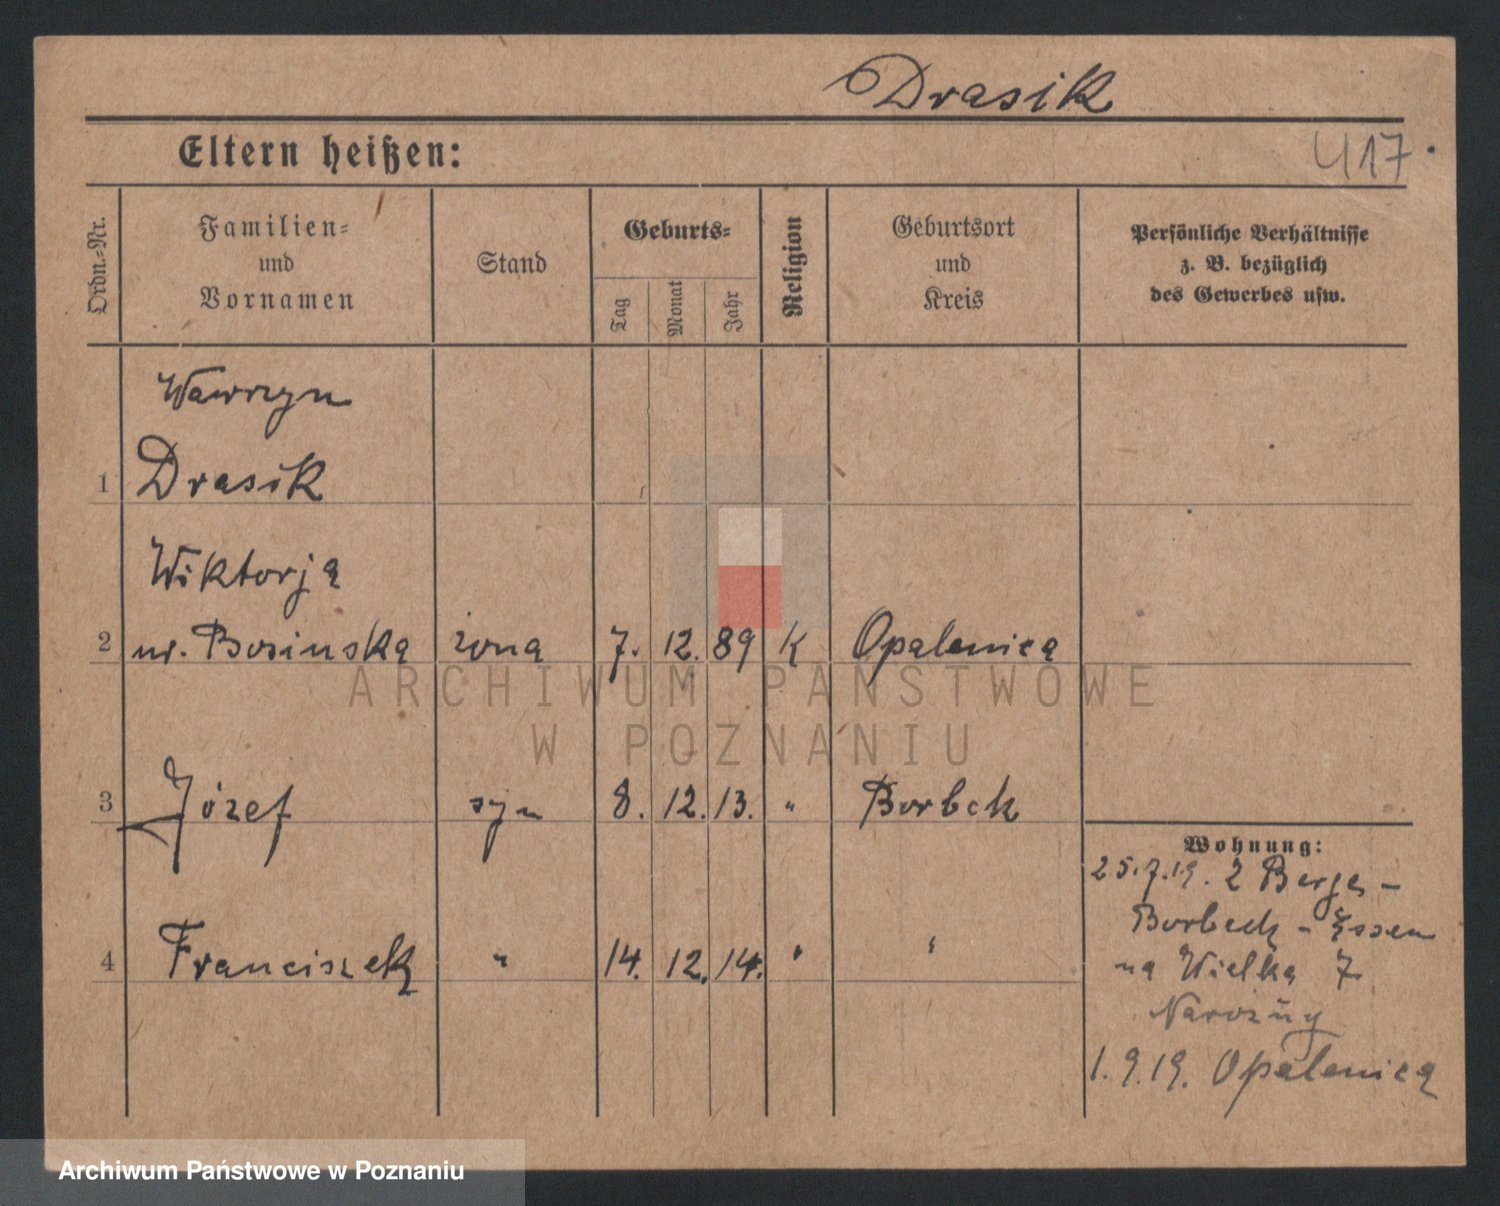 Drasik
417.
Eltern heißen:
Ordn.-Nr.
Familien-
und
Vornamen
Stand
Geburts-
Tag
Monat
Jahr
Religion
Geburtsort
und
Kreis
Persönliche Verhältnisse
z. B. bezüglich
des Gewerbes usw.
Wawrzyn
1 Drasik
Wiktorja
2 ur. Bosinska żona 7. 12. 89 K Opalenica
3 Józef syn 8. 12. 13. " Borbek
4 Franciszek " 14. 12. 14. " "
Wohnung:
25.7.19. 2 Berge-
Borbeck - Essen
na Wielka 7
Narożny
1.9.19. Opalenica
ARCHIWUM PAŃSTWOWE
W POZNANIU
Archiwum Państwowe w Poznaniu